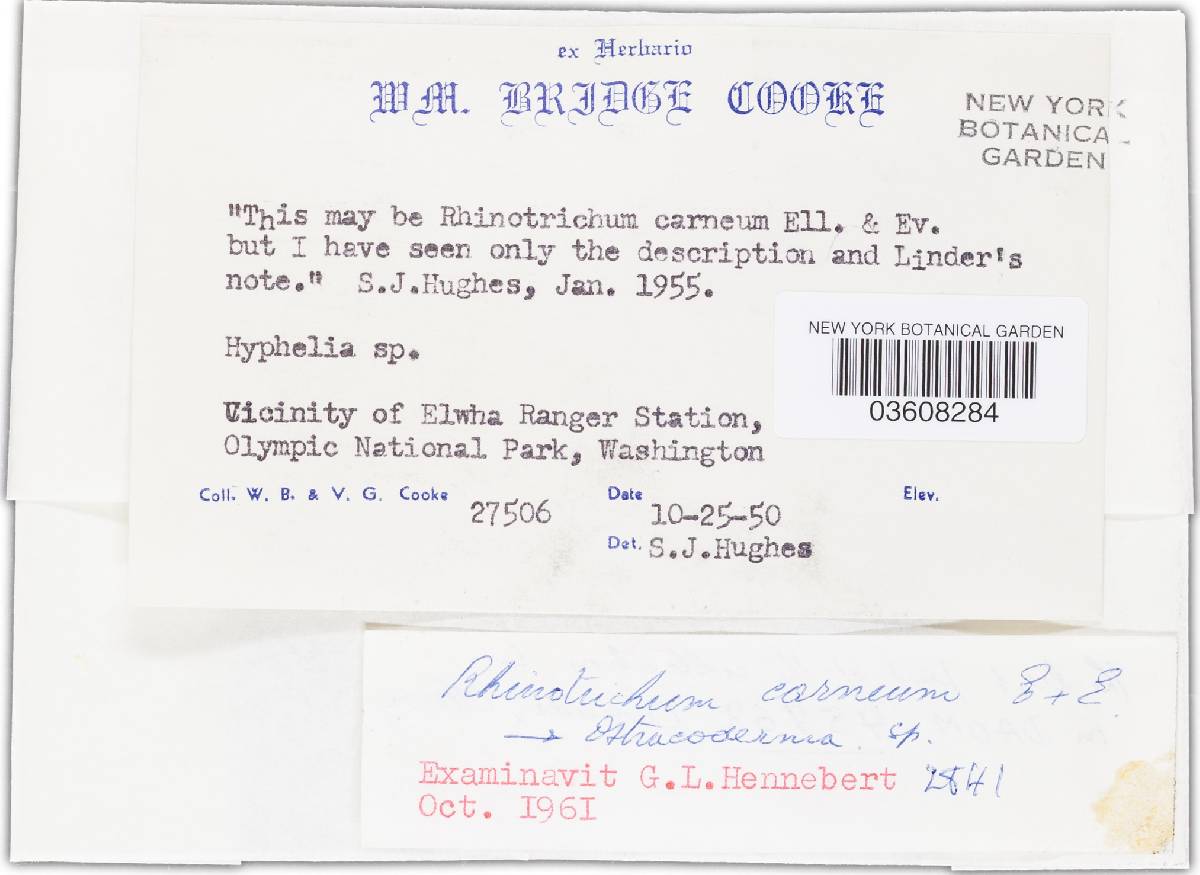 ex Herbario
WM. BRIDGE COOKE
NEW YORK
BOTANICAL
GARDEN
"This may be Rhinotrichum carneum Ell. & Ev.
but I have seen only the description and Linder's
note." S.J.Hughes, Jan. 1955.
NEW YORK BOTANICAL GARDEN
03608284
Hyphelia sp.
Vicinity of Elwha Ranger Station,
Olympic National Park, Washington
Coll. W. B. & V. G. Cooke 27506 Date 10-25-50 Elev.
Det. S.J.Hughes
Rhinotrichum carneum E + E.
→ Ostracoderma sp.
Examinavit G.L.Hennebert
Oct. 1961